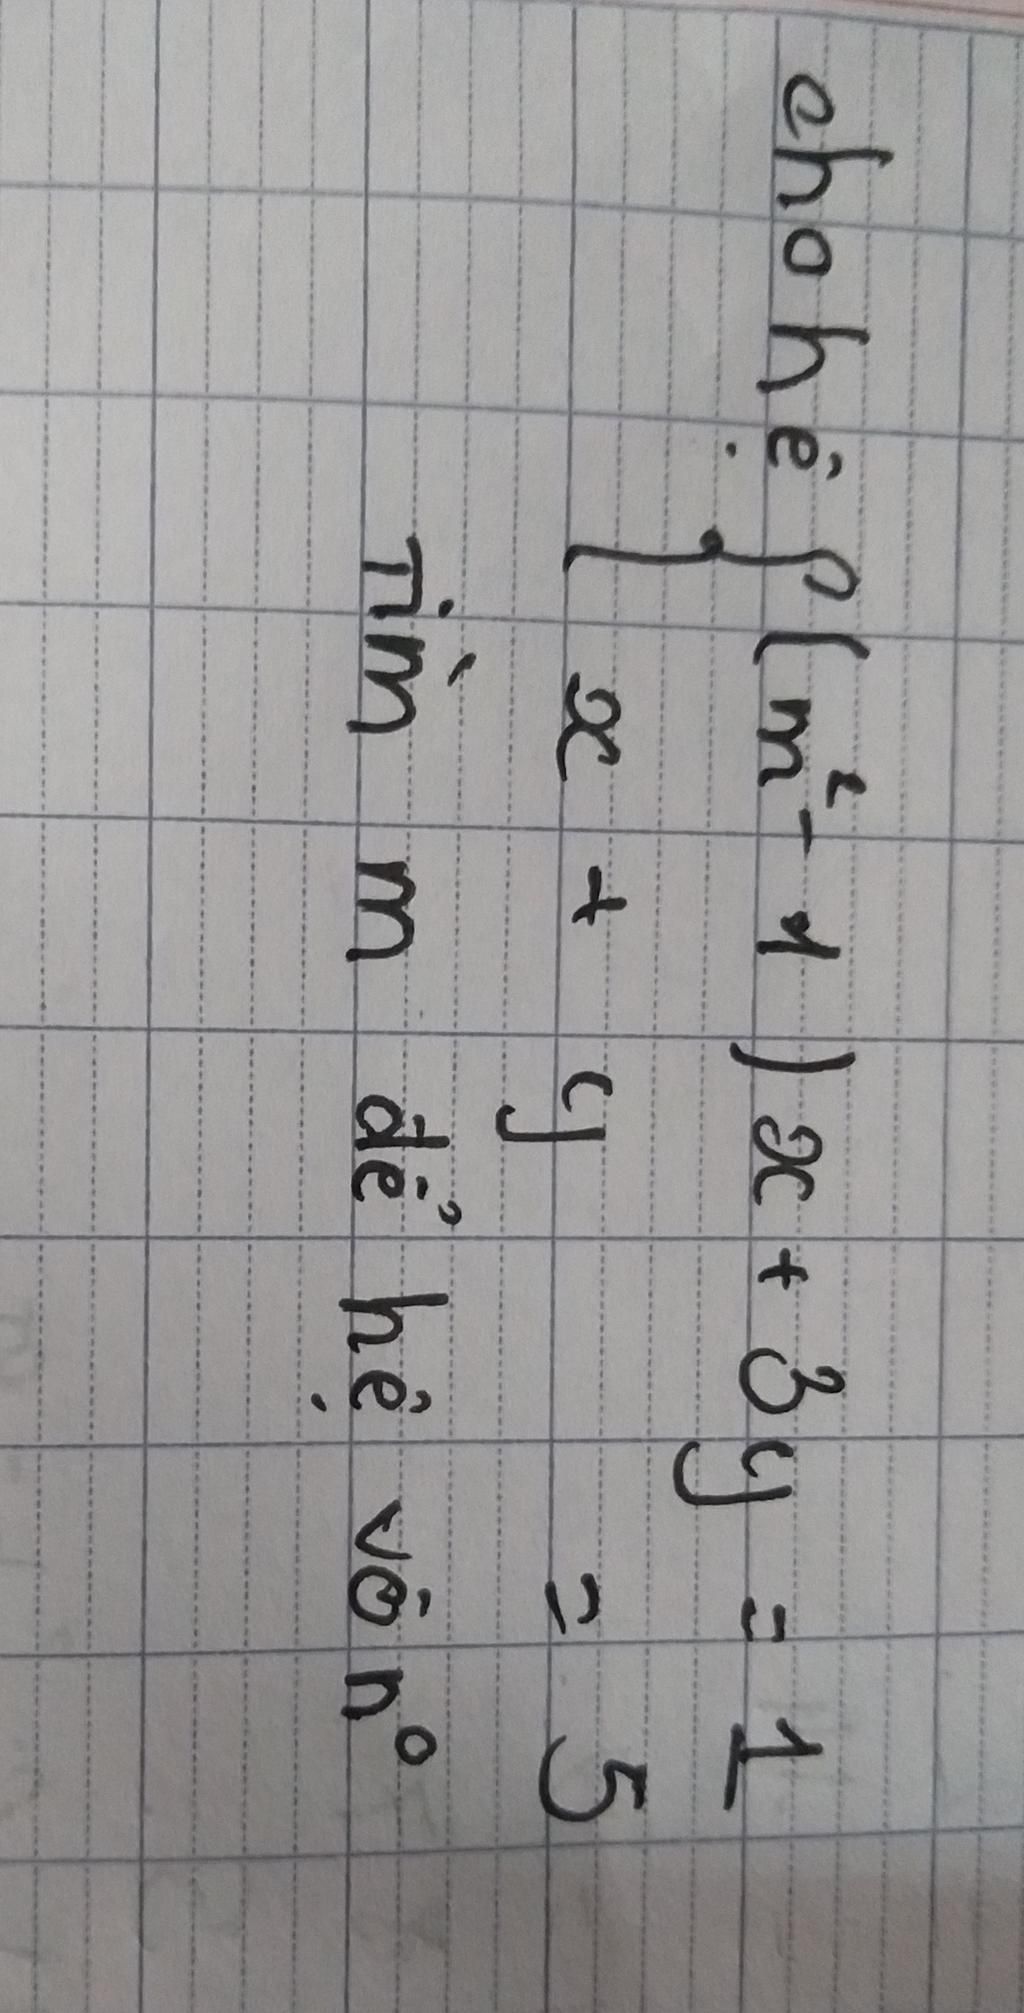 cho hệ { (m² - 1) x + 3y = 1
x + y = 5
Tìm m để hệ vô n°